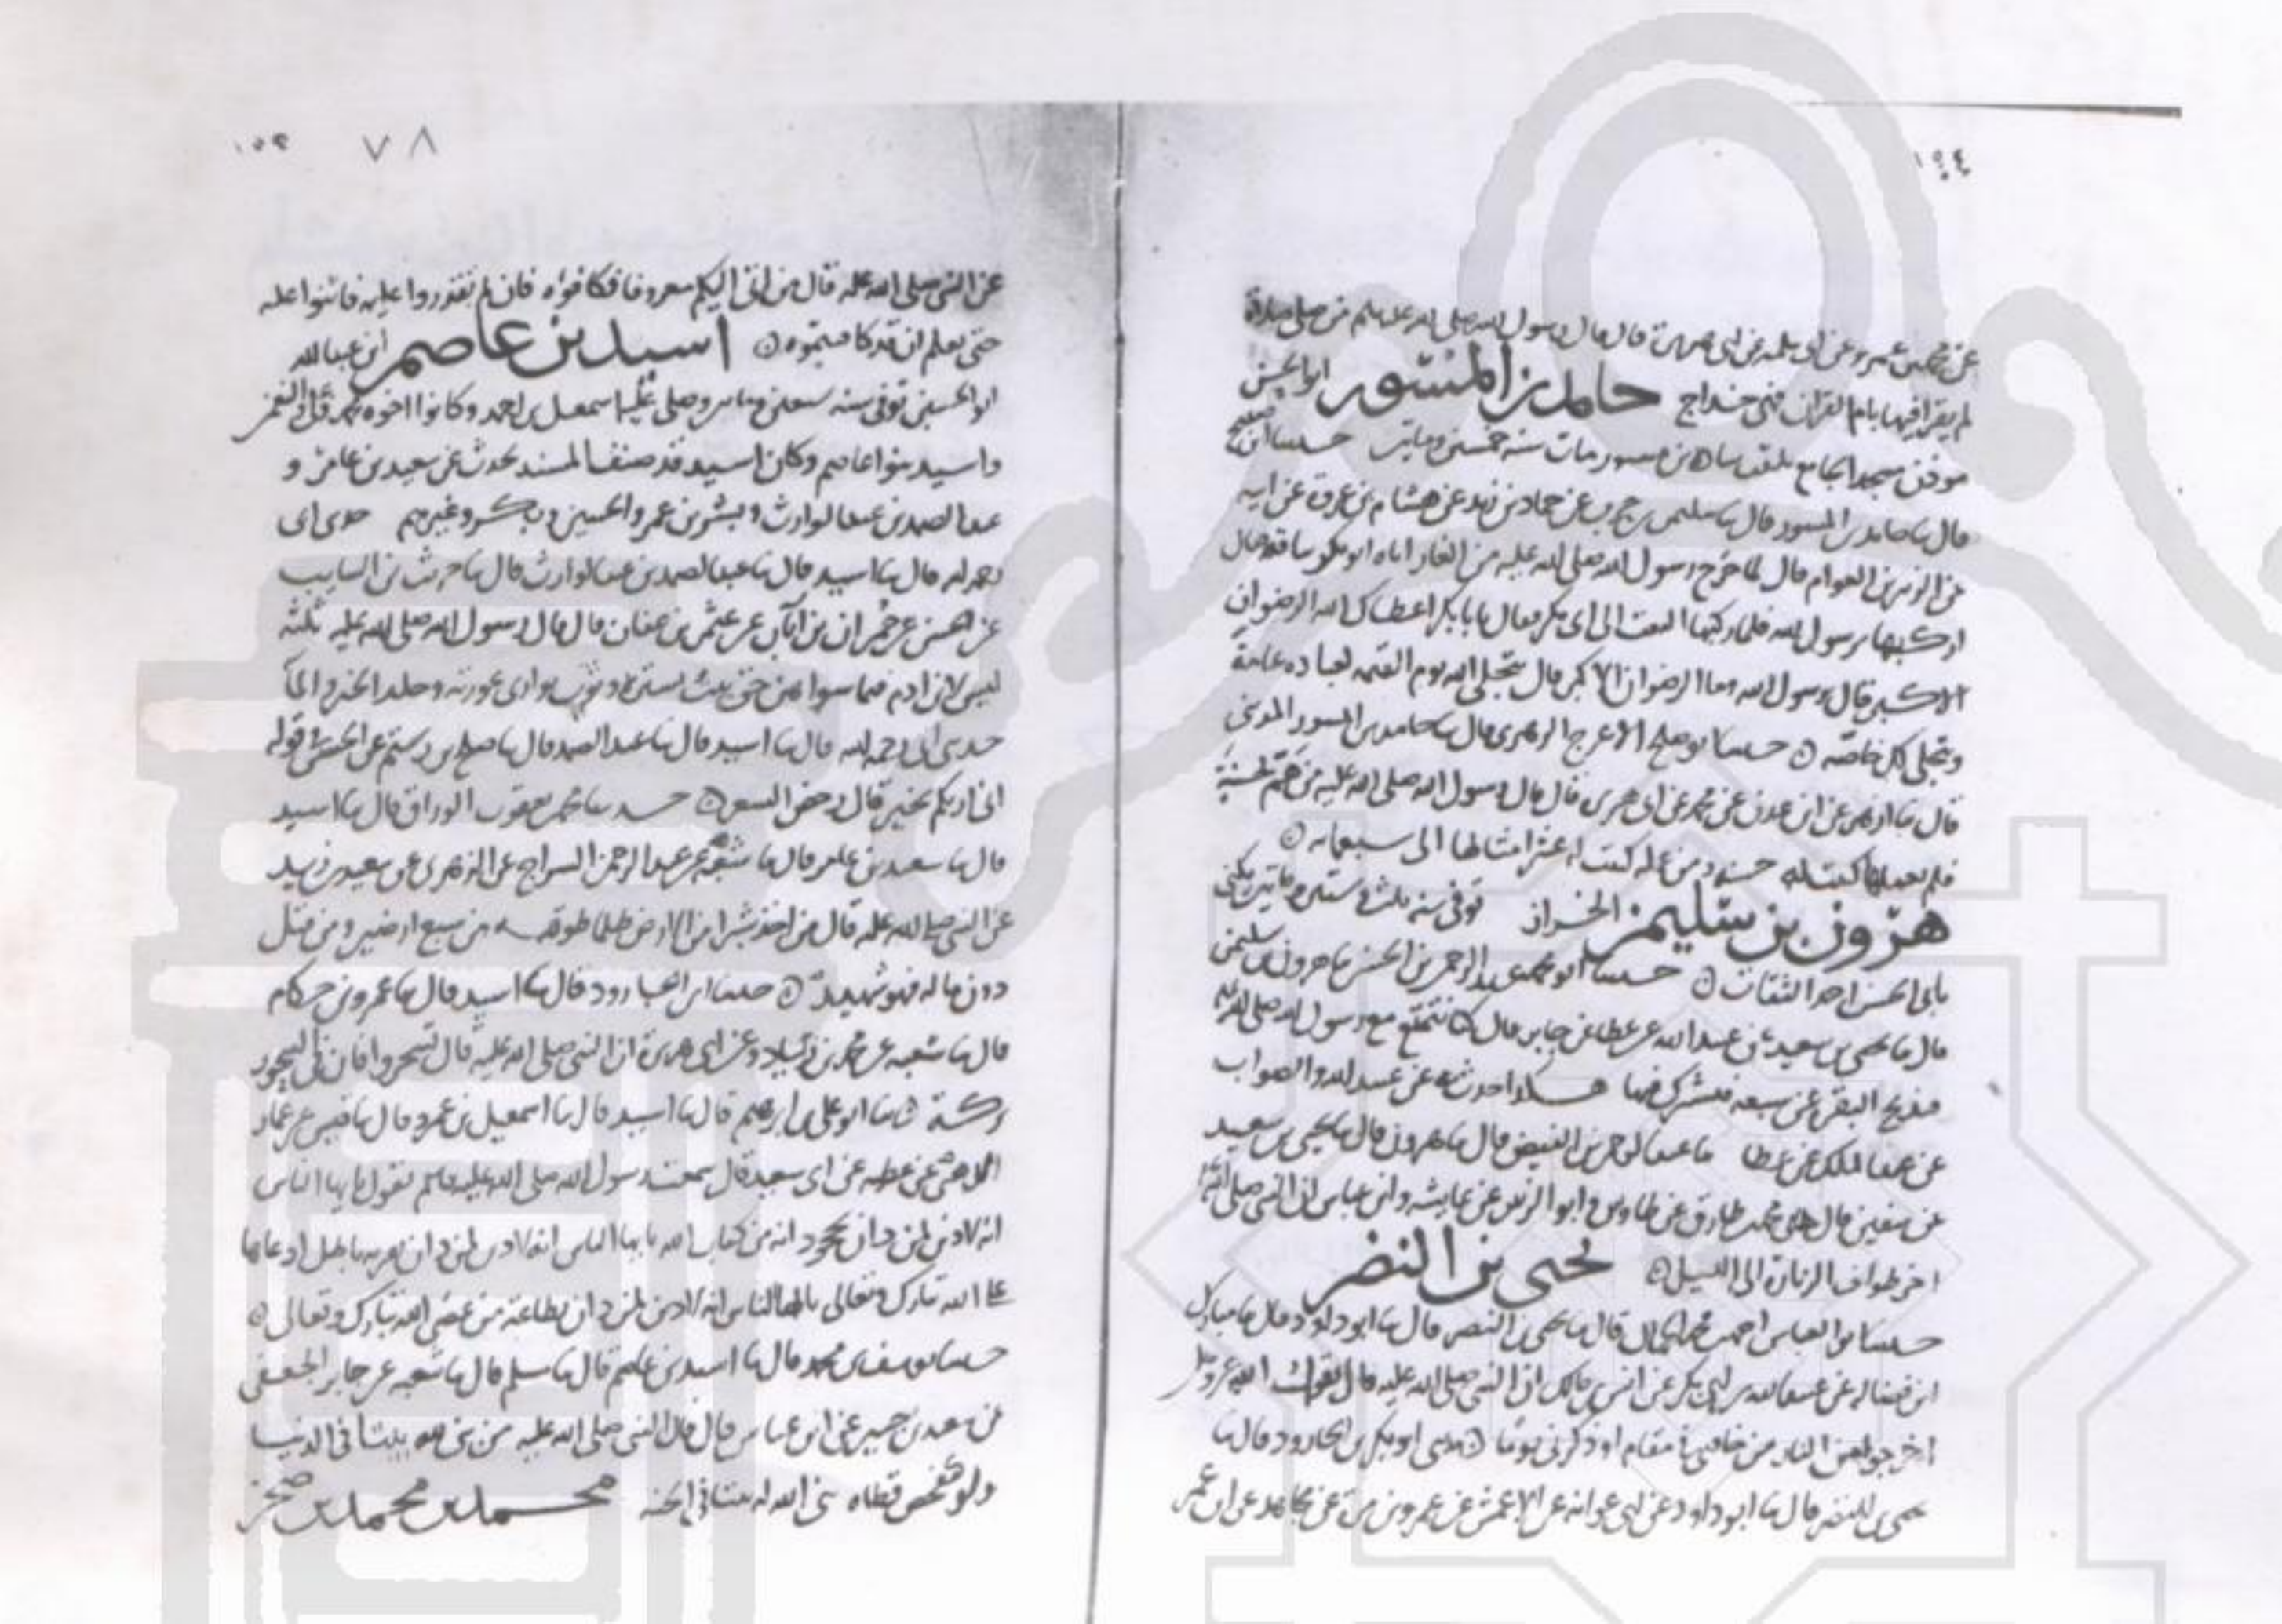 ١٥٤
عن محمد بن عمرو عن ابى سلمه عن ابى هريرة قال قال رسول الله صلى الله عليه وسلم من صلى صلاة
لم يقرا فيها بام القران فهى خداج حامد بن المسور ابو الحسن
موذن مسجد الجامع مات سنه خمسين وماتين حدثنا
قال ثنا حامد بن المسور قال ثنا سليمن بن حرب عن حماد بن زيد عن هشام بن عروة عن ابيه
عن الزبير بن العوام قال لما خرج رسول الله صلى الله عليه من الغار اتاه ابو بكر بناقه فقال
اركبها يرسول الله فلما ركبها التفت الى ابى بكر فقال يابا بكر اعطاك الله الرضوان
الاكبر قال يرسول الله وما الرضوان الاكبر قال يتجلى الله يوم القيمه لعباده عامة
ويتجلى لك خاصه حدثنا ابو صلح الاعرج الزهرى قال ثنا حامد بن المسور المدينى
قال ثنا ازهر عن ابن عون عن محمد عن ابى هريره قال قال رسول الله صلى الله عليه من هم بحسنة
فلم يعملها كتبت له حسنه ومن عمله كتبت له عشر امثالها الى سبعمايه
هرون بن سليمن الخراز توفى سنه ثلث وستين وماتين يكنى
بابى الحسن احد الثقات حدثنا ابو محمد عبد الرحمن بن الحسن ثنا هرون بن سليمن
قال ثنا يحيى بن سعيد عن عبد الله عن عطا عن جابر قال كنا نتمتع مع رسول الله صلى الله عليه
فنذبح البقرة عن سبعه نشترك فيها هكذا حدث به عن عبيد الله والصواب
عن عبد الملك عن عطا ثنا عبد الرحمن بن الفيض قال ثنا هرون قال ثنا يحيى بن سعيد
عن سفين قال حدثنى محمد بن طارق عن طاوس وابو الزبير عن عايشه وابن عباس ان النبى صلى الله عليه
اخر طواف الزيارة الى الليل يحيى بن النضر
حدثنا ابو العباس احمد بن محمد الجمال قال ثنا يحيى بن النضر قال ثنا ابو داود قال ثنا مبارك
ابن فضاله عن عبيد الله بن ابى بكر عن انس بن مالك ان النبى صلى الله عليه قال يقول الله عز وجل
اخرجوا من النار من خافنى فى مقام او ذكرنى يوما حدثنى ابو بكر بن الجارود قال ثنا
يحيى بن النضر قال ثنا ابو داود عن ابى عوانه عن الاعمش عن عمرو بن مرة عن مجاهد عن ابن عمر
٧٨ ١٥٣
عن النبى صلى الله عليه قال من اتى اليكم معروفا فكافوه فان لم تقدروا عليه فاثنوا عليه
حتى يعلم ان قد كافيتموه اسيد بن عاصم ابن عبد الله
ابو الحسين توفى سنه سبعين وماتين وصلى عليه اسمعيل بن احمد وكانوا اخوه محمد وعلى والنعمن
واسيد بنوا عاصم وكان اسيد قد صنف المسند يحدث عن سعيد بن عامر و
عبد الصمد بن عبد الوارث وبشر بن عمر والحسين وبكر وغيرهم حدثنى ابى
رحمه الله قال ثنا اسيد قال ثنا عبد الصمد بن عبد الوارث قال ثنا حريث بن السايب
عن الحسن عن حمران بن ابان عن عثمن بن عفان قال قال رسول الله صلى الله عليه ثلثه
ليس لابن ادم فيما سواهن حق بيت يسكنه وثوب يوارى عورته وجلف الخبز والما
حدثنى ابى رحمه الله قال ثنا اسيد قال ثنا عبد الصمد قال ثنا صلح بن رستم عن الحسن قوله
انى اريكم بخير قال رخص السعر حدثنا محمد بن يعقوب الوراق قال ثنا اسيد
قال ثنا سعيد بن عامر قال ثنا شعبه عن عبد الرحمن السراج عن الزهرى عن سعيد بن زيد
عن النبى صلى الله عليه قال من اخذ شبرا من الارض ظلما طوقه من سبع ارضين ومن قتل
دون ماله فهو شهيد حدثنا ابن الجارود قال ثنا اسيد قال ثنا عمرو بن حكام
قال ثنا شعبه عن محمد بن زياد عن ابى هريرة ان النبى صلى الله عليه قال تسحروا فان فى السحور
بركة ثنا ابو على بن ابرهيم قال ثنا اسيد قال ثنا اسمعيل بن عمرو قال ثنا قيس عن عمار
الدهنى عن عطيه عن ابى سعيد قال سمعت رسول الله صلى الله عليه وسلم يقول يا ايها الناس
انه لا دين لمن دان بجحود ايه من كتاب الله يا ايها الناس انه لا دين لمن دان بفريه باطل ادعاها
على الله تبارك وتعالى يا ايها الناس انه لا دين لمن دان بطاعة من عصى الله تبارك وتعالى
حدثنا يوسف بن محمد قال ثنا اسيد بن عاصم قال ثنا سلم قال ثنا شعبه عن جابر الجعفى
عن سعيد بن جبير عن ابن عباس قال قال النبى صلى الله عليه من بنى لله بيتا فى الدنيا
ولو مفحص قطاه بنى الله له بيتا فى الجنه محمد بن محمد بن صخر